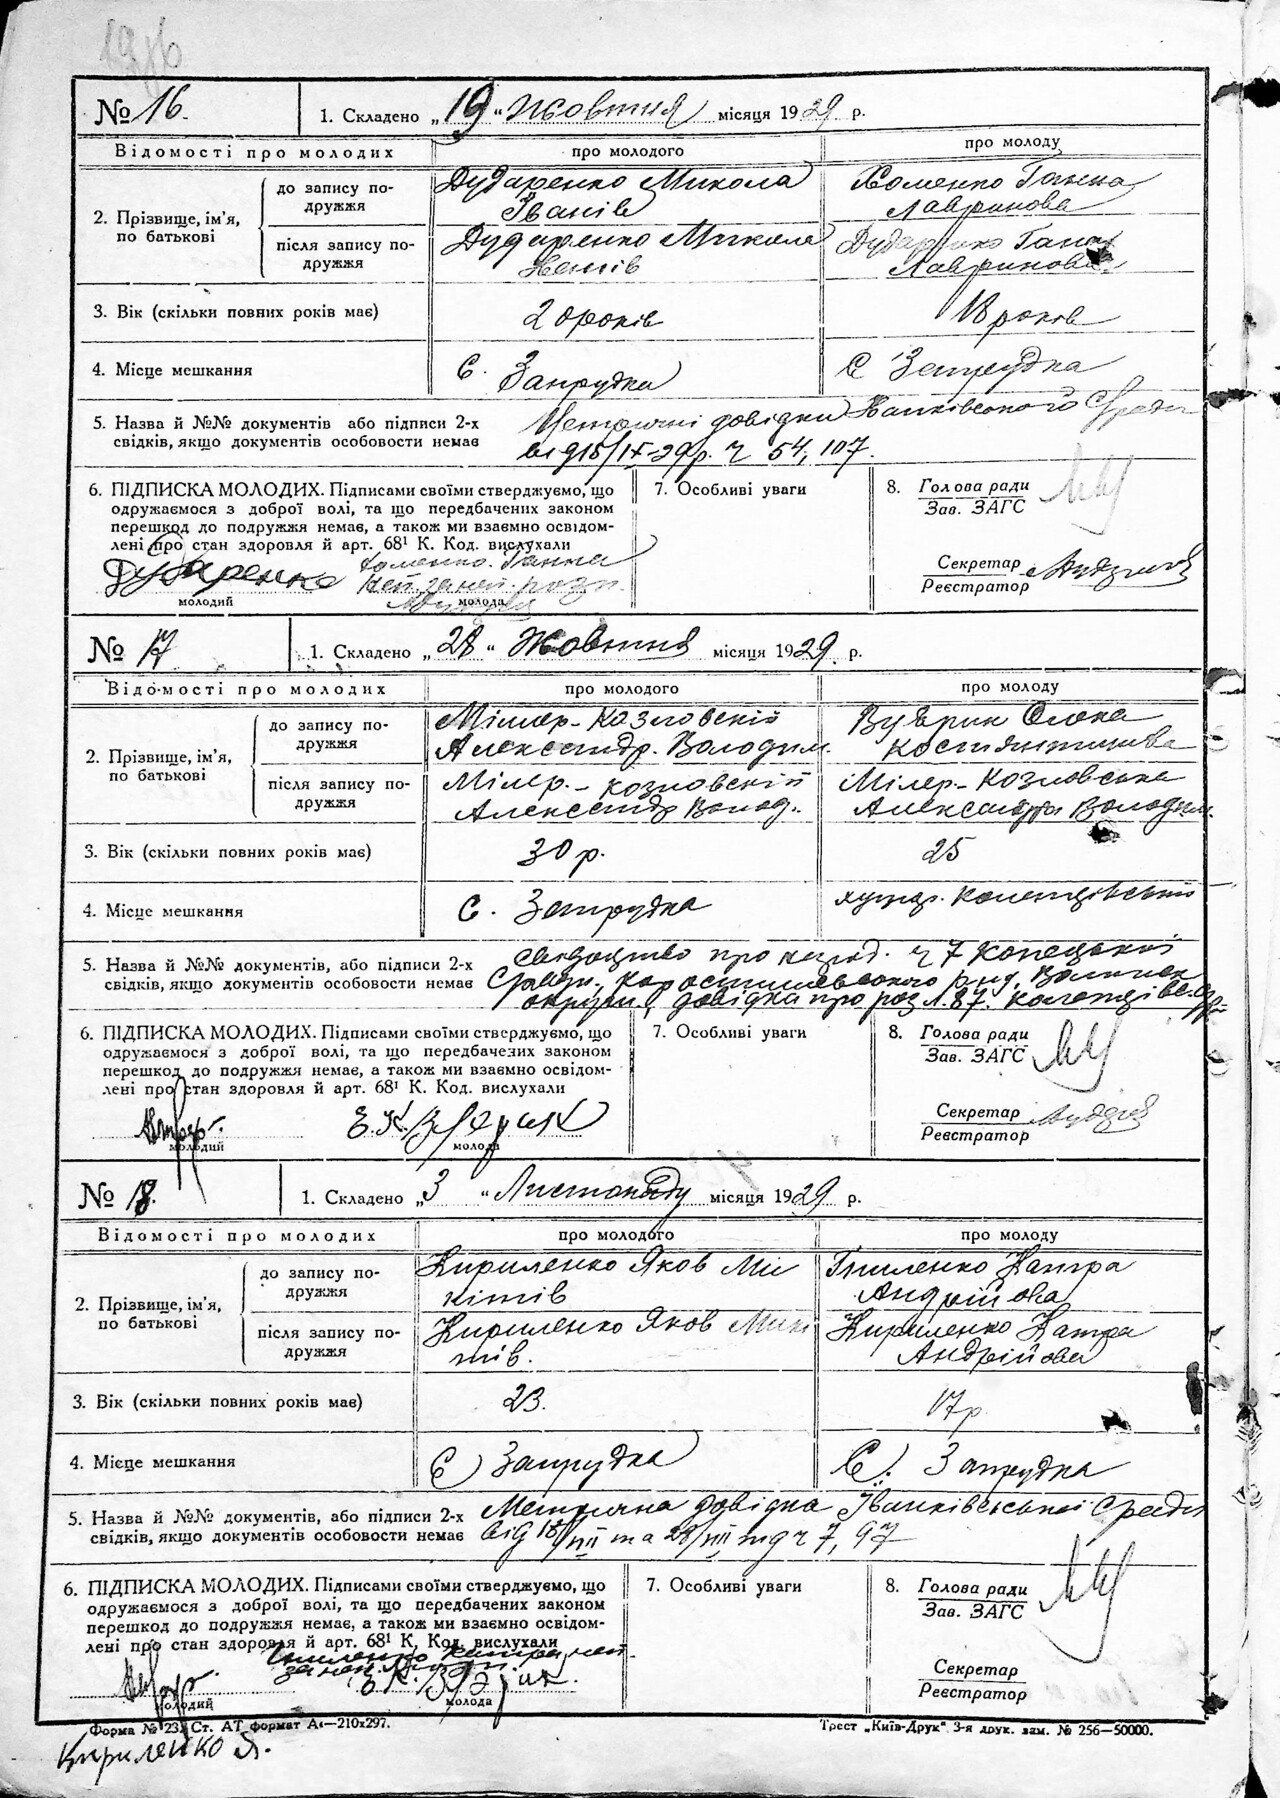 № 16. 1. Складено „19“ Жовтня місяця 1929 р.
Відомості про молодих про молодого про молоду
2. Прізвище, ім’я, по батькові
до запису подружжя Дударенко Микола Хоменко Ганна
Іванів Лавринова
після запису подружжя Дударенко Микола Дударенко Ганна
Іванів Лавринова
3. Вік (скільки повних років має) 20 років 18 років
4. Місце мешкання С. Запрудка С Запрудка
5. Назва й №№ документів або підписи 2-х Метричні довідки Іванківського С/ради
свідків, якщо документів особовости немає від 15/IX-29р. ч 54, 107.
6. ПІДПИСКА МОЛОДИХ. Підписами своїми стверджуємо, що 7. Особливі уваги 8. Голова ради
одружаємося з доброї волі, та що передбачених законом Зав. ЗАГС
перешкод до подружжя немає, а також ми взаємно освідом-
лені про стан здоровля й арт. 68¹ К. Код. вислухали Секретар
Дударенко Хоменко Ганна Реєстратор
молодий молода
№ 17 1. Складено „28“ Жовтня місяця 1929 р.
Відомості про молодих про молодого про молоду
2. Прізвище, ім’я, по батькові
до запису подружжя Міллер-Козловскій Олена
Александр. Володим. Костянтинова
після запису подружжя Мілер.-Козловскій Мілер-Козловська
Александр Волод. Александра Володим.
3. Вік (скільки повних років має) 30 р. 25
4. Місце мешкання С. Запрудка хутор.
5. Назва й №№ документів, або підписи 2-х свідоцтво про ч 7
свідків, якщо документів особовости немає С/ради. Коростишевського округи, довідка про роз.
6. ПІДПИСКА МОЛОДИХ. Підписами своїми стверджуємо, що 7. Особливі уваги 8. Голова ради
одружаємося з доброї волі, та що передбачених законом Зав. ЗАГС
перешкод до подружжя немає, а також ми взаємно освідом-
лені про стан здоровля й арт. 68¹ К. Код. вислухали Секретар
молодий молода Реєстратор
№ 18. 1. Складено „3“ Листопаду місяця 1929 р.
Відомості про молодих про молодого про молоду
2. Прізвище, ім’я, по батькові
до запису подружжя Кириленко Яков Ми Катра
кітів Андрійова
після запису подружжя Кириленко Яков Микі Кириленко Катра
тів. Андрійова
3. Вік (скільки повних років має) 23. 17р.
4. Місце мешкання С) Запрудка С. Запрудка
5. Назва й №№ документів, або підписи 2-х Метрична довідка Іванківської С/ради
свідків, якщо документів особовости немає від 18/VII та 28/VII ч 7, 97
6. ПІДПИСКА МОЛОДИХ. Підписами своїми стверджуємо, що 7. Особливі уваги 8. Голова ради
одружаємося з доброї волі, та що передбачених законом Зав. ЗАГС
перешкод до подружжя немає, а також ми взаємно освідом-
лені про стан здоровля й арт. 68¹ К. Код. вислухали
Секретар
молодий молода Реєстратор
Форма № 23. Ст. АТ формат А₄—210x297. Трест „Київ-Друк“ 3-я друк. зам. № 256—50000.
Кириленко Я.